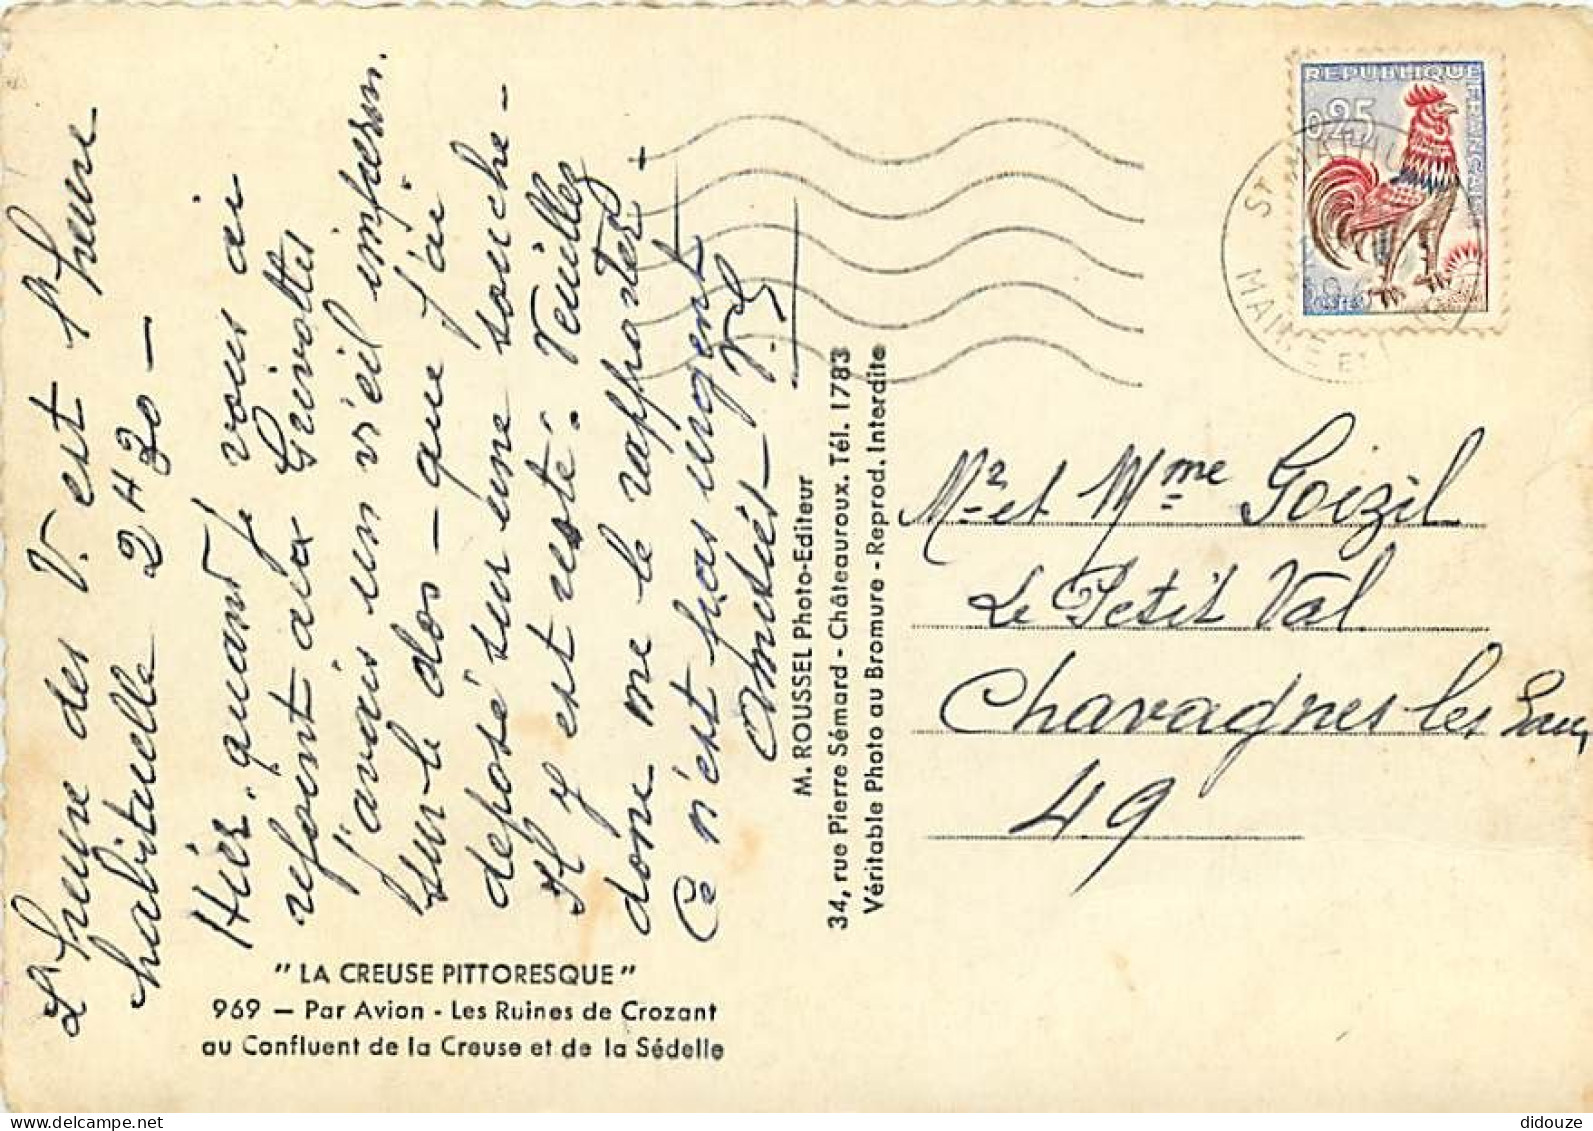 L'heure des V. est l'heure
habituelle 2 H 30 —
Hier - quand je vous ai
rejoint aux Grivottes
j'avais un vieil imperm.
sur le dos - que j'ai
déposé sur une souche -
Il y est resté. Veuillez
donc me le rapporter -
Ce n'est pas urgent
Amitiés
" LA CREUSE PITTORESQUE "
969 — Par Avion - Les Ruines de Crozant
au Confluent de la Creuse et de la Sédelle
M. ROUSSEL Photo-Editeur
34, rue Pierre Sémard - Châteauroux. Tél. 1783
Véritable Photo au Bromure - Reprod. Interdite
REPUBLIQUE FRANÇAISE
0,25
POSTES
ST
MAINE ET
Mr et Mme Goizil
Le Petit Val
Chavagnes les Eaux
49
didouze